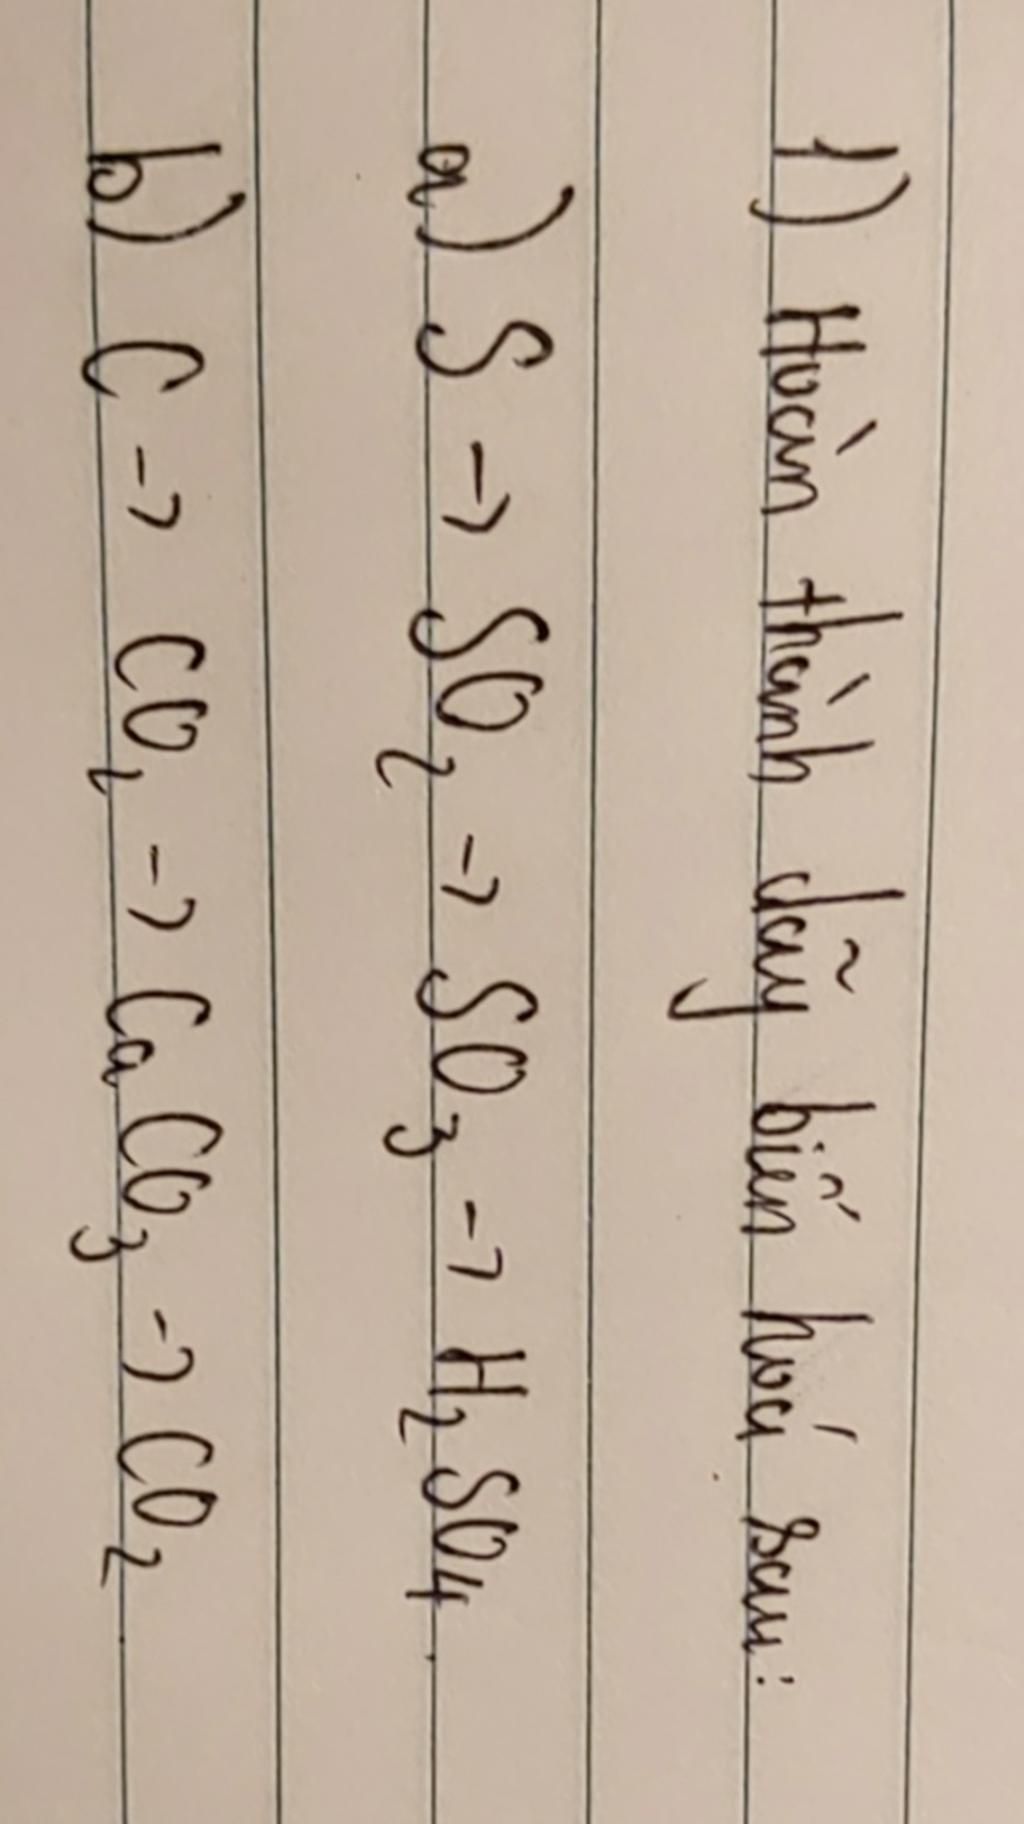 1) Hoàn thành dãy biến hoá sau:
a) S → SO₂ → SO₃ → H₂SO₄.
b) C → CO₂ → CaCO₃ → CO₂